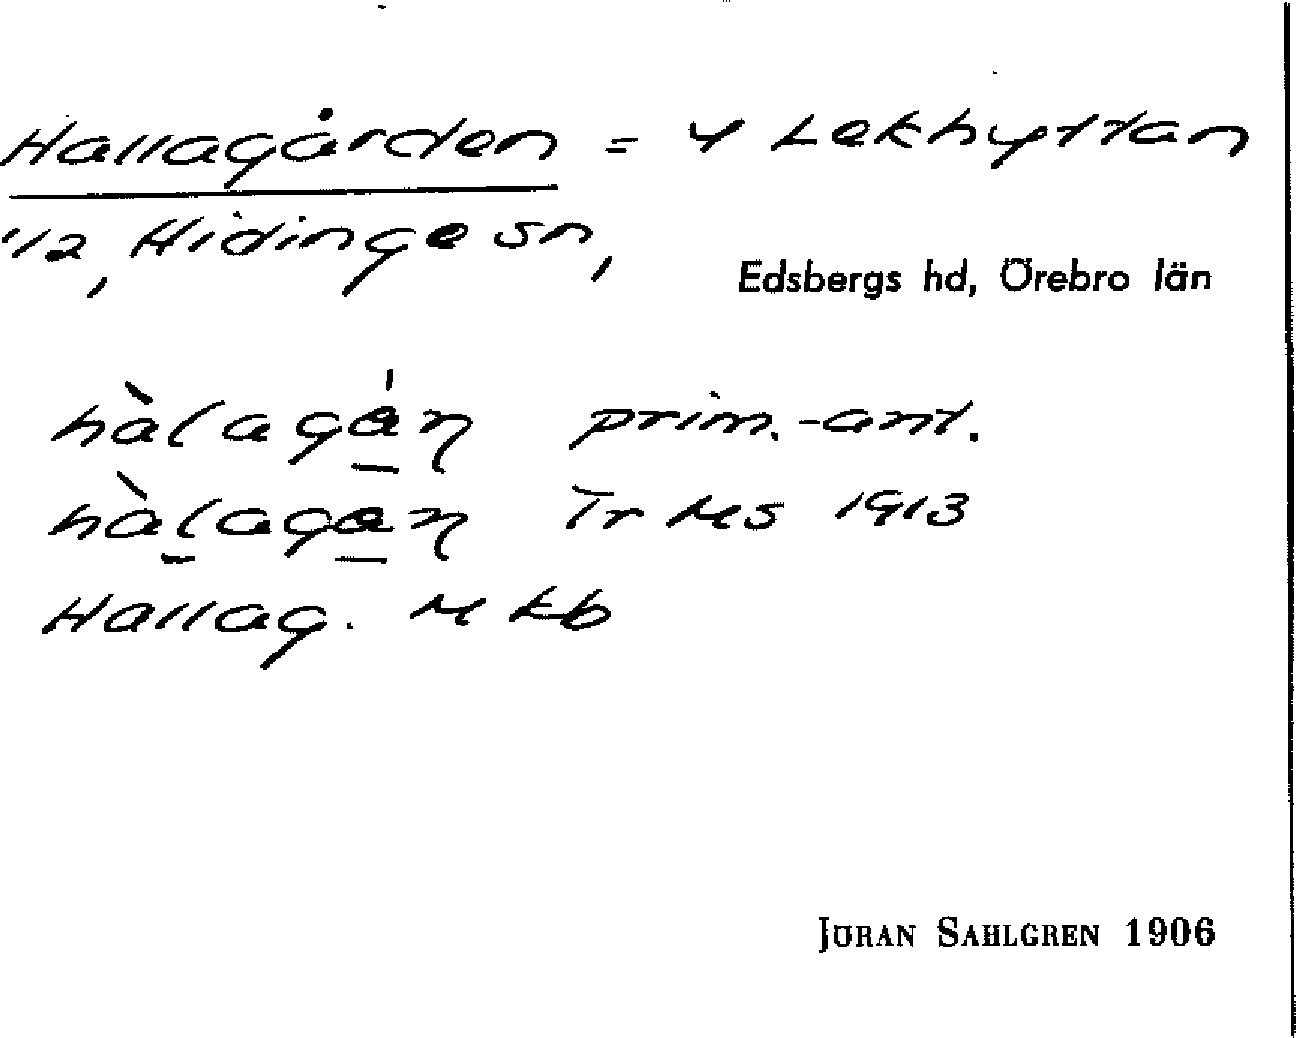 Hallagården = Y Lekhyttan
1/2, Hidinge sn,
Edsbergs hd, Örebro län
hàlaga̱̍ɳ prim.-ant.
hàḻaga̱ɳ Tr Ms 1913
Hallag. M kb
JÖRAN SAHLGREN 1906